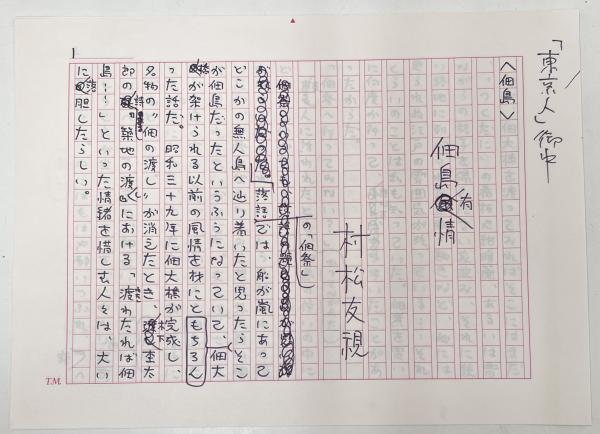 「東京人」御中
〈佃島〉
佃島有情
村松友視
の「佃祭」
落語では、船が嵐にあって
どこかの無人島へ辿り着いたと思ったらそこ
が佃島だったというふうになっていて、佃大
橋が架けられる以前の風情を材にともちろん
った話だ。昭和三十九年に佃大橋が完成し、
名物の“佃の渡し”が消えたとき、木下杢太
郎の詩“築地の渡し”における「渡わたれば佃
島……」といった情緒を惜しむ人々は、大い
に落胆したらしい。
1
T.M.